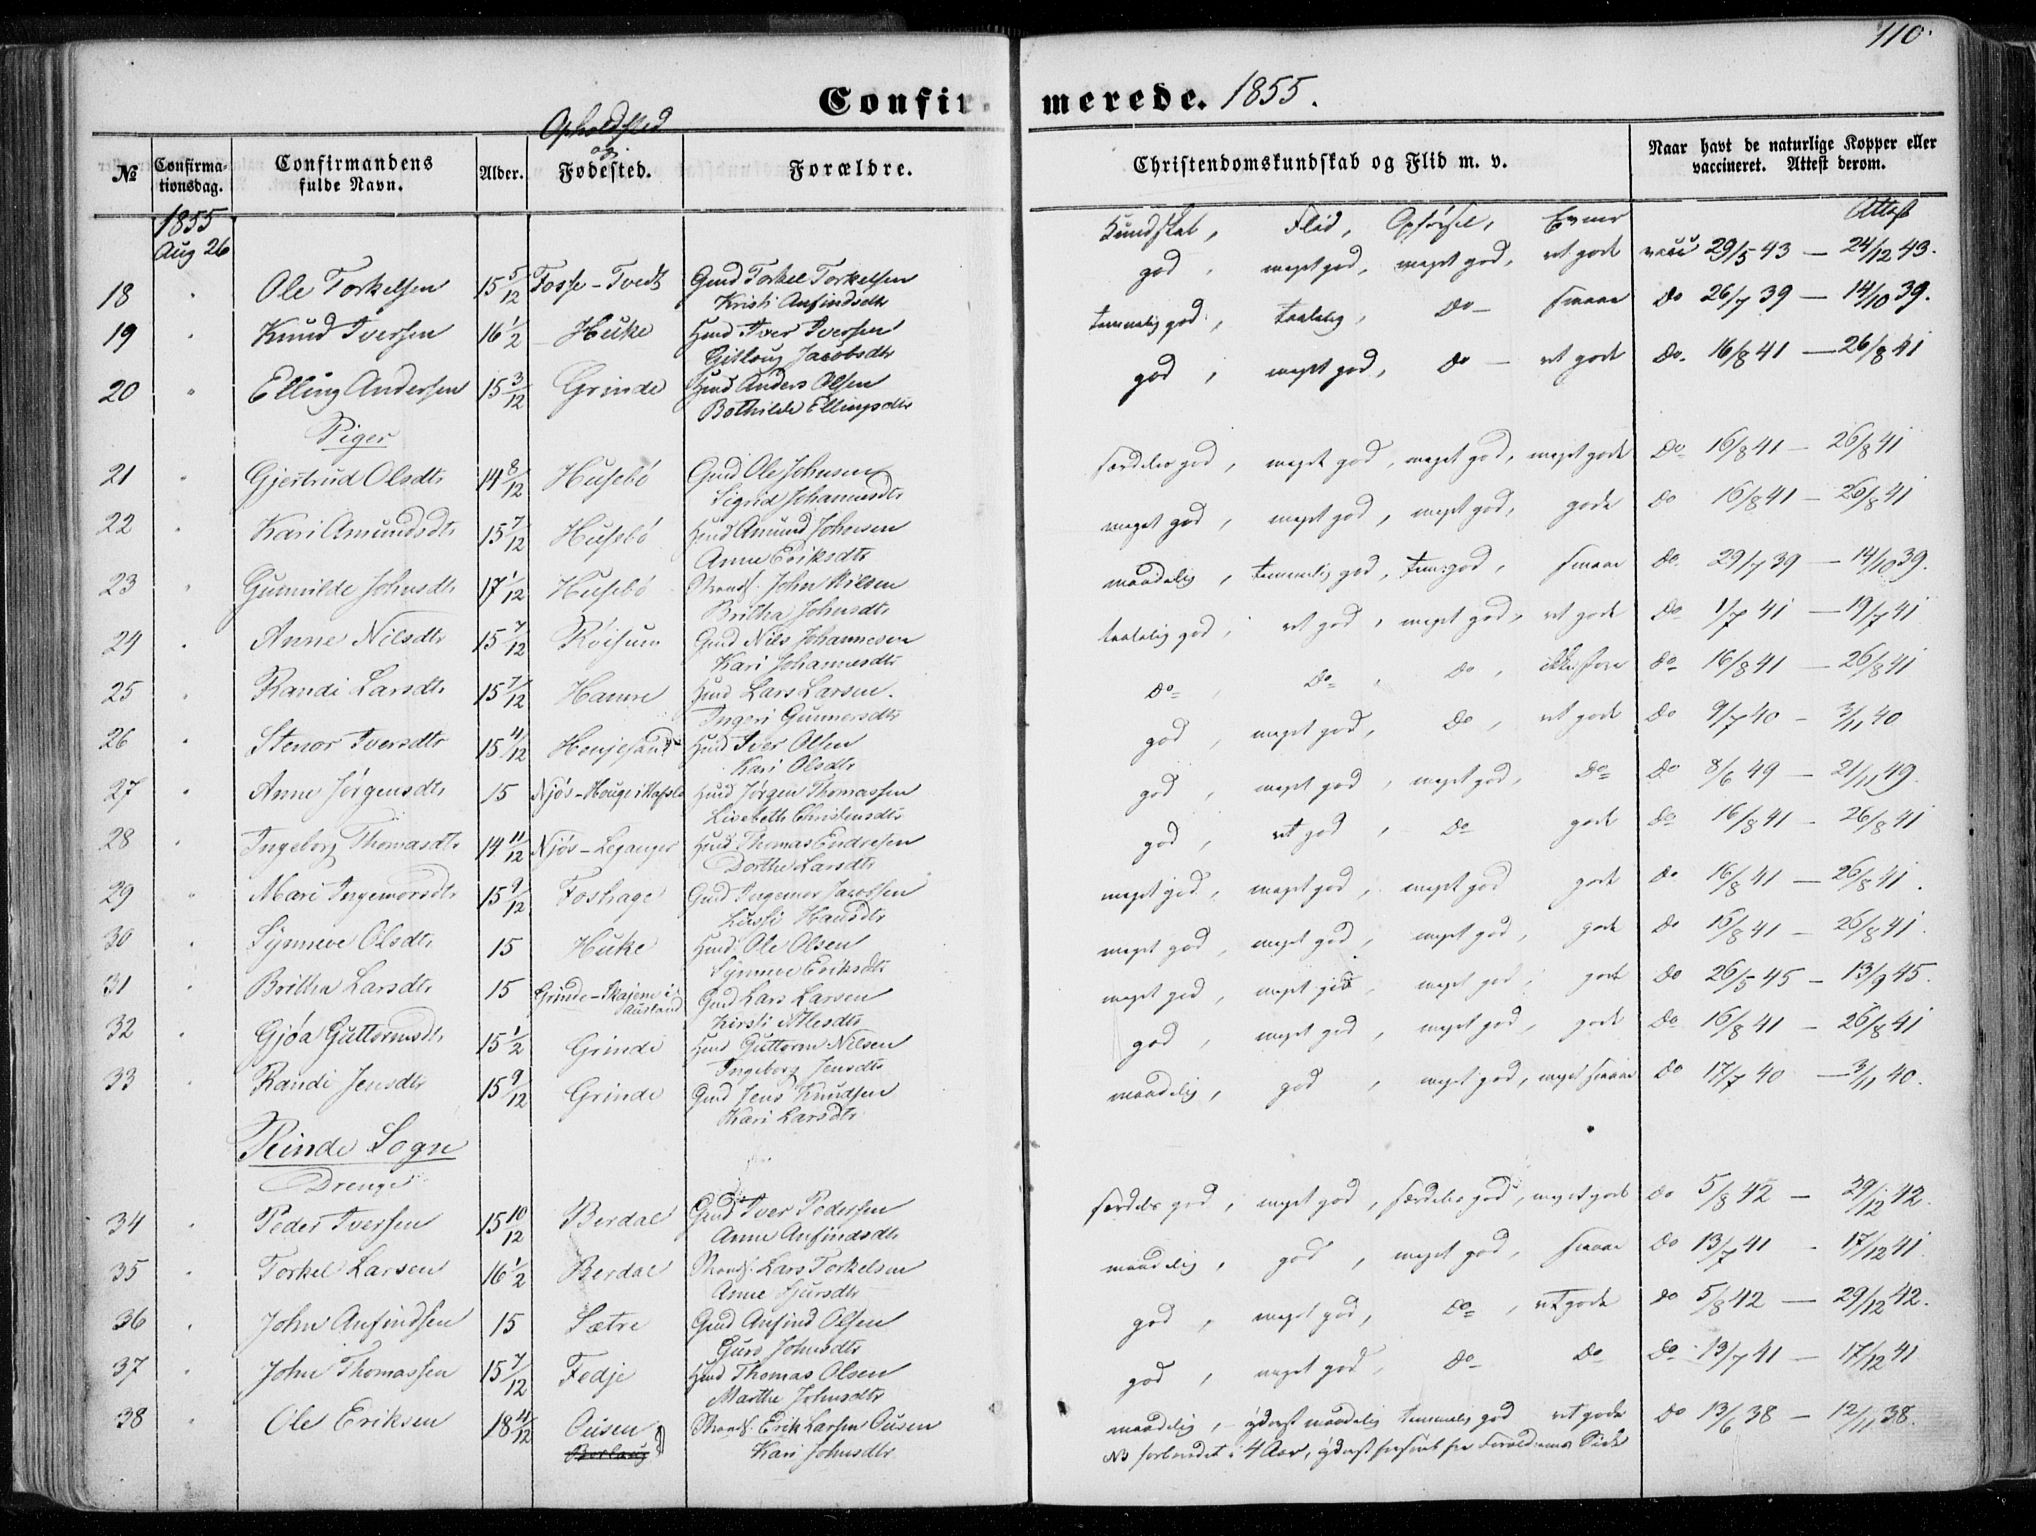 110.
Confirmerede. 1855.
Opholdsted og
№ Confirmationsdag. Confirmandens fulde Navn. Alder. Fødested. Forældre. Christendomskundskab og Flid m. v. Naar havt de naturlige Kopper eller vaccineret. Attest derom.
1855
Aug 26
Kundskab, Flid, Opførsel, Evner Attest
18 " Ole Torkelsen 15 5/12 Fosse - Tvedt Gmd Torkel Torkelsen god, meget god, meget god, ret gode vacc 29/5 43 — 24/12 43.
Kristi Anfindsdtr
19 " Knud Iversen 16 1/2 Huke Hmd Iver Iversen temmelig god, taalelig, Do - smaae Do 26/7 39 — 14/10 39.
Gitlaug Jacobsdtr
20 " Elling Andersen 15 3/12 Grinde Hmd Anders Olsen god, meget god, Do - ret gode Do. 16/8 41 — 26/8 41
Bothilde Ellingsdtr
Piger
21 " Gjertrud Olsdtr 14 8/12 Husebö Gmd Ole Johnsen særdeles god, meget god, meget god, meget gode Do 16/8 41 — 26/8 41
Sigrid Johannesdtr
22 " Kari Amundsdtr 15 7/12 Husebö Hmd Amund Johnsen meget god, meget god, meget god, gode Do 16/8 41 — 26/8 41
Anne Eriksdtr
23 " Gunnilde Johnsdtr 17 1/12 Husebö Strands. John Nilsen maadelig, temmelig god, tem: god, smaae Do. 29/7 39 — 14/10 39.
Britha Johnsdtr
24 " Anne Nilsdtr 15 7/12 Röisum Gmd Nils Johannesen taalelig god, ret god, meget god, ret gode Do 1/7 41 — 19/7 41
Kari Johannesdtr
25 " Randi Larsdtr 15 7/12 Hamre Hmd Lars Larsen. Do, Do, Do, ikke store Do 16/8 41 — 26/8 41
Ingeri Gunnersdtr
26 " Stenor Iversdtr 15 11/12 Hmd Iver Olsen god, meget god, Do, ret gode Do 9/7 40 — 3/11 40
Kari Olsdtr
27 " Anne Jörgensdtr 15 Njös - Houge i Hafslo Hmd Jörgen Thomassen god, meget god, meget god, Do Do 8/6 49 — 21/11 49.
Lisebeth Christensdtr
28 " Ingeborg Thomasdtr 14 11/12 Njös - Leganger Hmd Thomas Endresen god, ret god, Do gode Do 16/8 41 — 26/8 41
Dorthe Larsdtr
29 " Mari Ingemorsdtr 15 9/12 Foshage Gmd Ingemor Jacobsen meget god, meget god, meget god gode Do 16/8 41 — 26/8 41.
Hansdtr
30 " Synneve Olsdtr 15 Huke Hmd Ole Olsen meget god, meget god, meget god, gode Do 16/8 41 — 26/8 41.
Synneve Eriksdtr
31 " Britha Larsdtr 15 Grinde - Skajem i Aurland Gmd Lars Larsen meget god, meget god, meget god, gode Do 26/5 45 — 13/9 45.
Kirsti Atlesdtr
32 " Gjöa Guttormsdtr 15 1/2 Grinde Hmd Guttorm Nilsen god, meget god, meget god, gode Do 16/8 41 — 26/8 41
Ingeborg Jensdtr
33 " Randi Jensdtr 15 9/12 Grinde Gmd Jens Knudsen maadelig, god, meget god, meget smaae Do 17/7 40 — 3/11 40.
Kari Larsdtr
Rinde Sogn
Drenge
34 " Peder Iversen 15 10/12 Berdal Gmd Iver Pedersen særdeles god, meget god, særdeles god, meget gode Do 5/8 42 — 29/12 42.
Anne Anfindsdtr
35 " Torkel Larsen 16 1/2 Berdal Strands. Lars Torkelsen maadelig, god, meget god, smaae Do 13/7 41 - 17/12 41.
Anne Sjursdtr
36 " John Anfindsen 15 Sætre Gmd Anfind Olsen god, meget god, Do, ret gode Do 5/8 42 — 29/12 42.
Guro Johnsdtr
37 " John Thomassen 15 7/12 Fedje Hmd Thomas Olsen god, meget god, Do Do Do 13/7 41 — 17/12 41
Marthe Johnsdtr
38 " Ole Eriksen 18 11/12 Ousen Strands. Erik Larsen Ousen maadelig, yderst maadelig temmelig god ret gode Do 13/6 38 — 12/11 38.
Kari Johnsdtr NB forberedet i 4 Aar, yderst forsömt fra Forældrenes Side